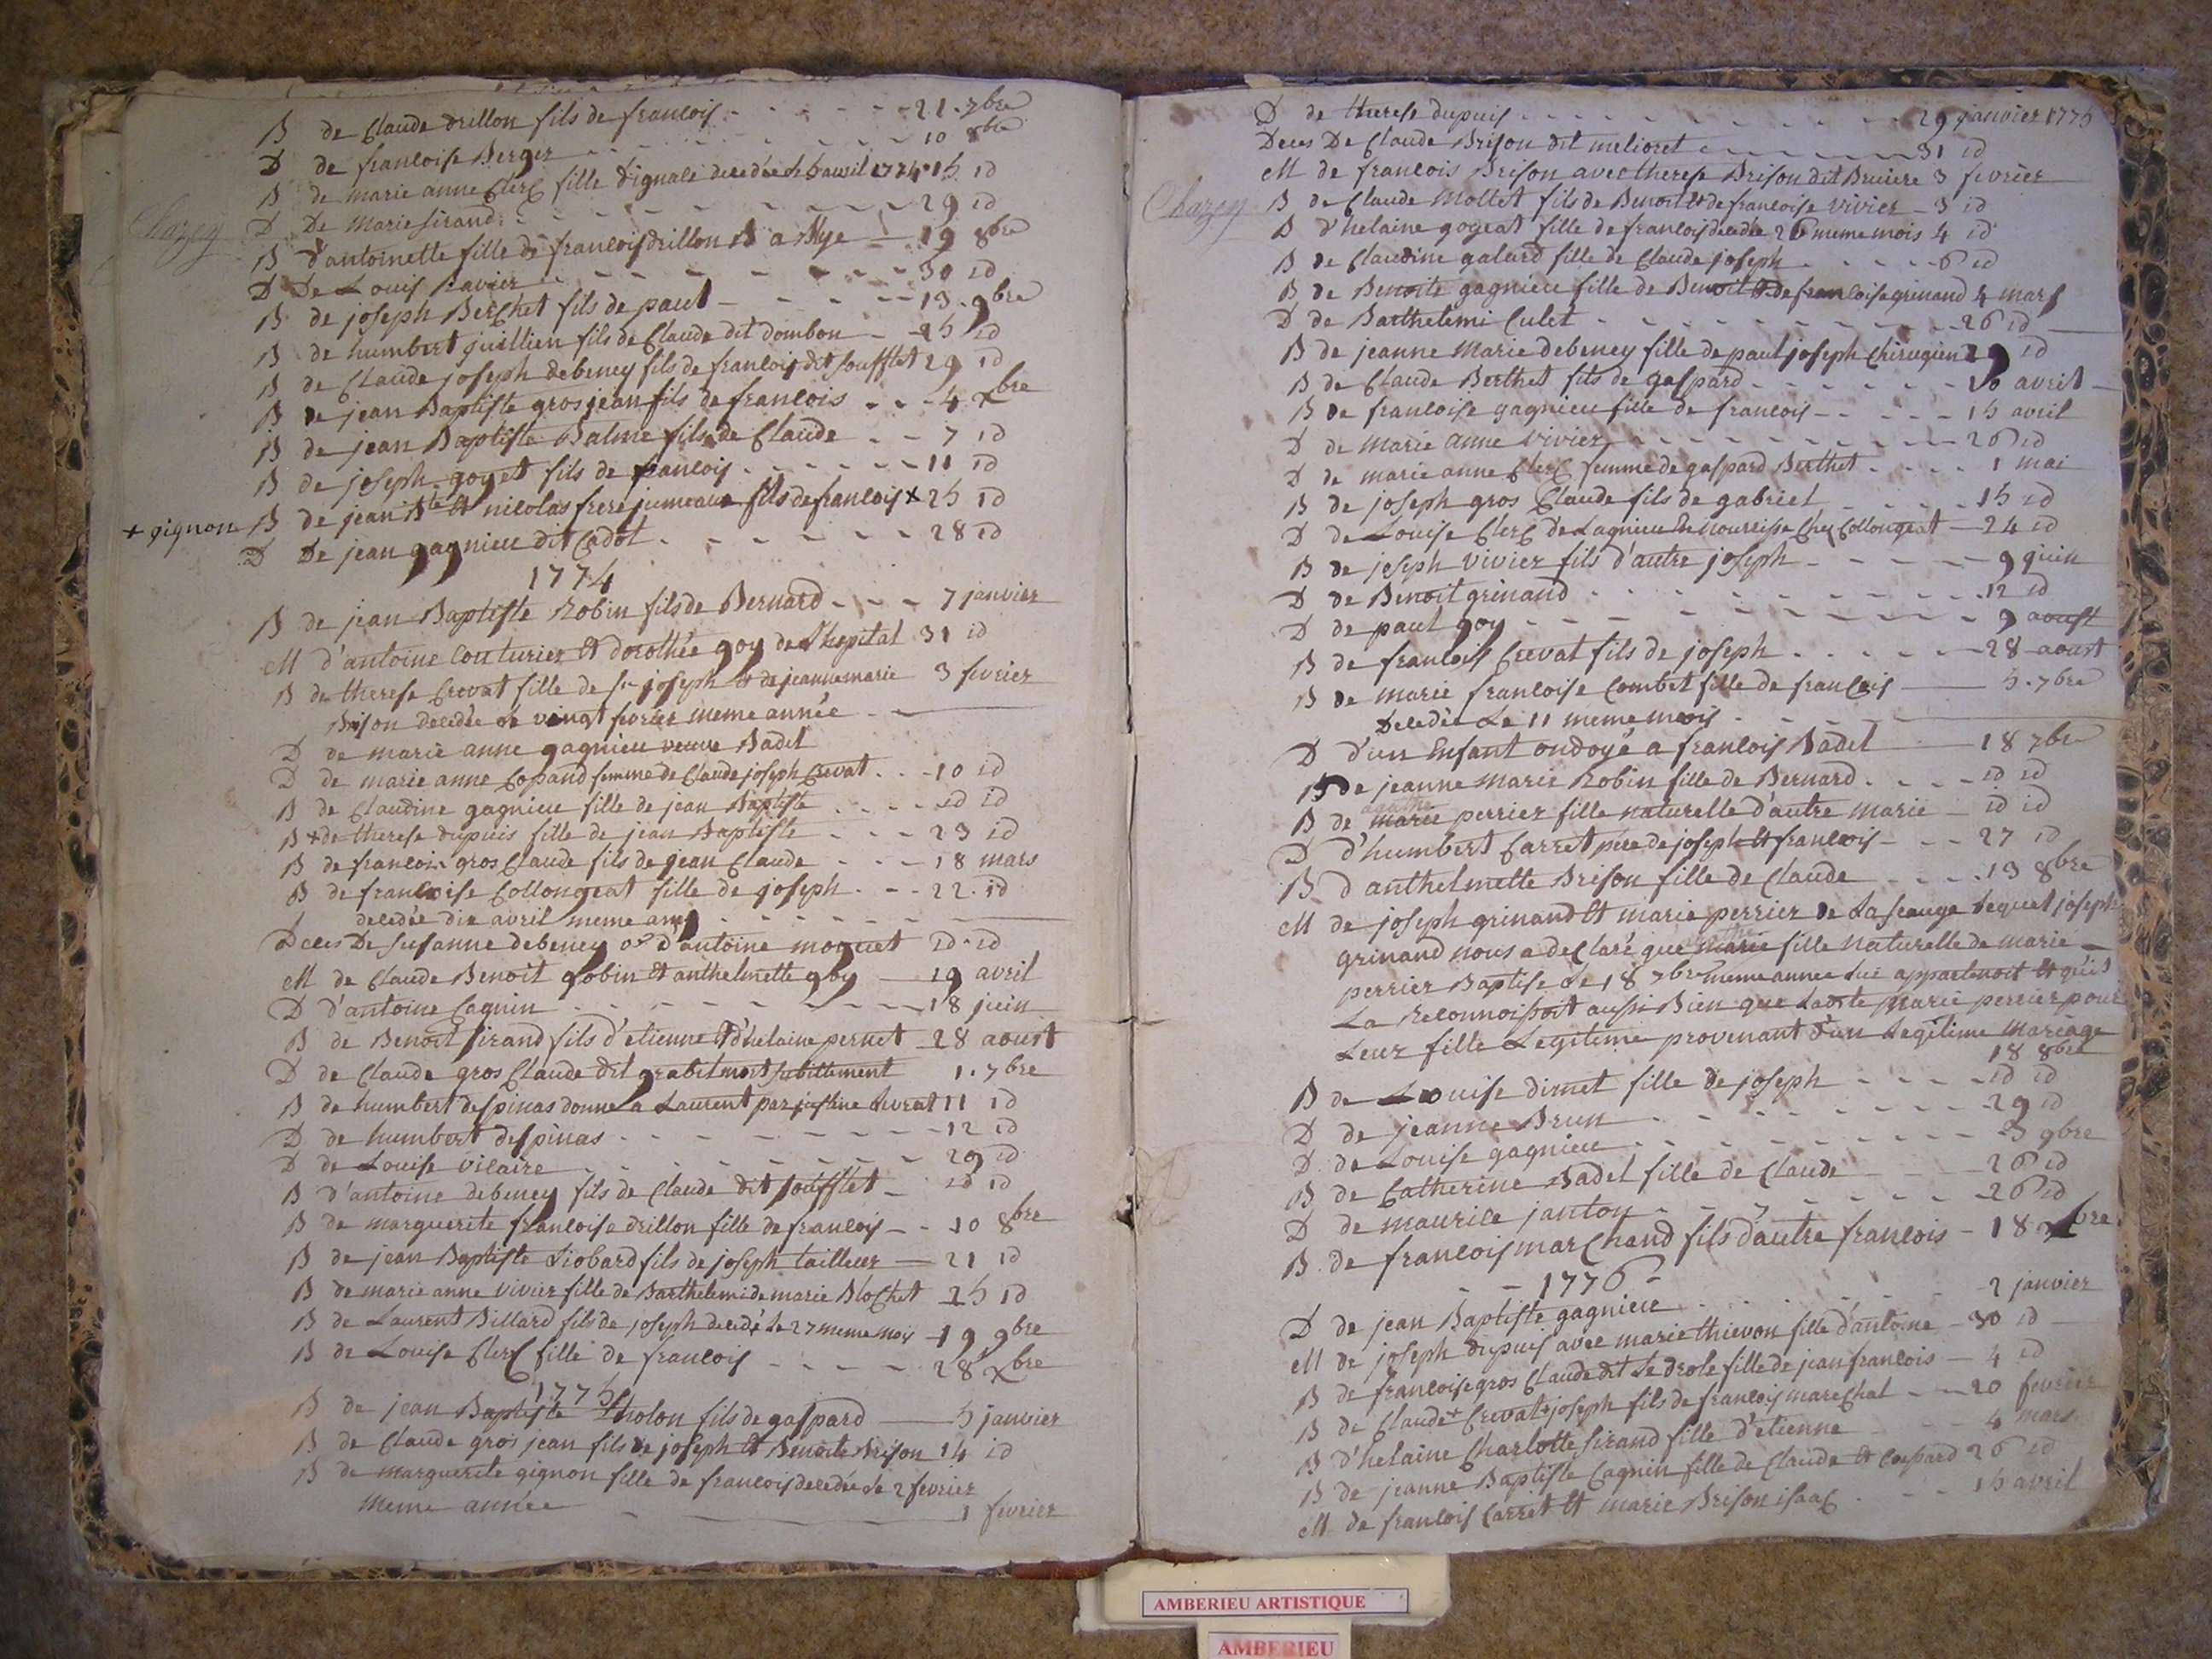 B de Claude drillon fils de francois - - - - - - 21. 7bre
D de francoise Berger - - - - - - 10 8bre
B de marie anne Clerc fille d'ignace decedée le 5 avril 1774 15 id
Chazey D De Marie sirand - - - - - - 29 id
B d'antoinette fille de francois drillon B a Blye - 19 8bre
D De Louis Ravier - - - - - - 30 id
B de joseph Berchet fils de paul - - - - - 13. 9bre
B de humbert juillien fils de Claude dit dombon - 25 id
B de Claude joseph debeney fils de francois dit soufflet 29 id
B de jean Baptiste gros jean fils de francois - - - 4 xbre
B de jean Baptiste Balme fils de Claude - - 7 id
B de joseph goyet fils de francois - - - - - - 11 id
+ gignon B de jean Bte et nicolas frere jumeaux fils de francois + 25 id
D De jean gagnieu dit Cadot - - - - - - 28 id
1774
B de jean Baptiste Robin fils de Bernard - - - 7 janvier
M d'antoine Couturier et dorothée goy de L'hopital 31 id
B de therese Crevat fille de sr joseph et de jeanne marie 3 fevrier
Brison decedée le vingt fevrier meme année
D de marie anne gagnieu veuve Badel
D de marie anne Copand femme de Claude joseph Crevat - - 10 id
B de Claudine gagnieu fille de jean Baptiste - - - - id id
B + de therese dupuis fille de jean Baptiste - - - 23 id
B de francois gros Claude fils de jean Claude - - - 18 mars
B de francoise Collongeat fille de joseph - - - 22. id
decedée dix avril meme an
Deces De susanne debeney d'antoine moquet id. id
M de Claude Benoit gobin et anthelmette goy — 19 avril
D d'antoine Cagnin - - - - - - 18 juin
B de Benoit sirand fils d'etienne et d'helaine pernet 28 aoust
D de Claude gros Claude dit grabit mort subittement 1. 7bre
B de humbert despinas donné a Laurent par justine Livrat 11 id
D de humbert despinas - - - - - - 12 id
D de Louise vilaire - - - - - - 29 id
B d'antoine debeney fils de Claude dit soufflet - id id
B de marguerite francoise drillon fille de francois - - 10 8bre
B de jean Baptiste Liobard fils de joseph tailleur — 21 id
B de marie anne vivier fille de Barthelemi de marie Blochet 25 id
B de Laurent Billard fils de joseph decedé le 27 meme mois 19 9bre
B de Louise Clerc fille de francois - - - - 28 xbre
1775
B de jean Baptiste Tholon fils de gaspard — 5 janvier
B de Claude gros jean fils de joseph et Benoite Brison 14 id
B de marguerite gignon fille de francois decedée le 2 fevrier
meme année - 1 fevrier
D de therese dupuis - - - - - - 29 janvier 1775
Deces De Claude Brison dit melioret - - - - - 31 id
M de francois Brison avec therese Brison dit Bruiere 3 fevrier
Chazey B de Claude Mollet fils de Benoit et de francoise vivier - 3 id
B d'helaine goyeat fille de francois decedée 26 meme mois 4 id
B de Claudine galard fille de Claude joseph - - - - 6 id
B de Benoite gagnieu fille de Benoit et de francoise grinand 4 mars
D de Barthelemi Culet - - - - - - 26 id
B de jeanne Marie debeney fille de paul joseph Chirugien 29 id
B de Claude Berthet fils de gaspard - - - - - 10 avril
B de francoise gagnieu fille de francois - - - - 15 avril
D de marie anne vivier - - - - - - 26 id
D de marie anne Clerc femme de gaspard Berthet - - - 1 mai
B de joseph gros Claude fils de gabriel - - - - 15 id
D de Louise Clerc de Lagnieu En nourrisse Chez Collongeat - 24 id
B de joseph vivier fils d'autre joseph - - - - - 9 juin
D de Benoit grinand - - - - - - 12 id
D de paul goy - - - - - - 9 aoust
B de francois Crevat fils de joseph - - - - - 28 aoust
B de marie francoise Combet fille de francois — 5. 7bre
Decedée Le 11 meme mois
D d'un Enfant ondoyé a francois Badel 18 7bre
B de jeanne Marie Robin fille de Bernard - - - - id id
B de marie perrier fille naturelle d'autre marie - id id
D d'humbert Carret pere de joseph et francois - - - 27 id
B d'anthelmette Brison fille de Claude - - - 13 8bre
M de joseph grinand et marie perrier de La seauge Lequel joseph
grinand nous a declaré que marie fille naturelle de marie
perrier Baptisé Le 18 7bre meme annee Lui appartenoit et qu'il
La Reconnoissoit aussi Bien que Ladite Marie perrier pour
Leur fille Legitime provenant d'un Legitime Mariage
18 8bre
B de Louise dimet fille de joseph - - - - id id
D de jeanne Brun - - - - - - 29 id
D de Louise gagnieu - - - - - - 3 9bre
B de Catherine Badel fille de Claude - - 26 id
D de maurice janton - - - - - - 26 id
B de francois marchand fils d'autre francois - 18 xbre
- - 1776 -
D de jean Baptiste gagnieu - - - - - 2 janvier
M de joseph dupuis avec marie thievon fille d'antoine - 30 id
B de francoise gros Claude dit Le drole fille de jean francois - 4 id
B de Claude + Crevat + joseph fils de francois marechal - - 20 fevrier
B d'helaine Charlotte sirand fille d'etienne - - 4 mars
B de jeanne Baptiste Cagnin fille de Claude et Copard 26 id
M de francois Carret et marie Brison isaac - - - 15 avril
AMBERIEU ARTISTIQUE
AMBERIEU